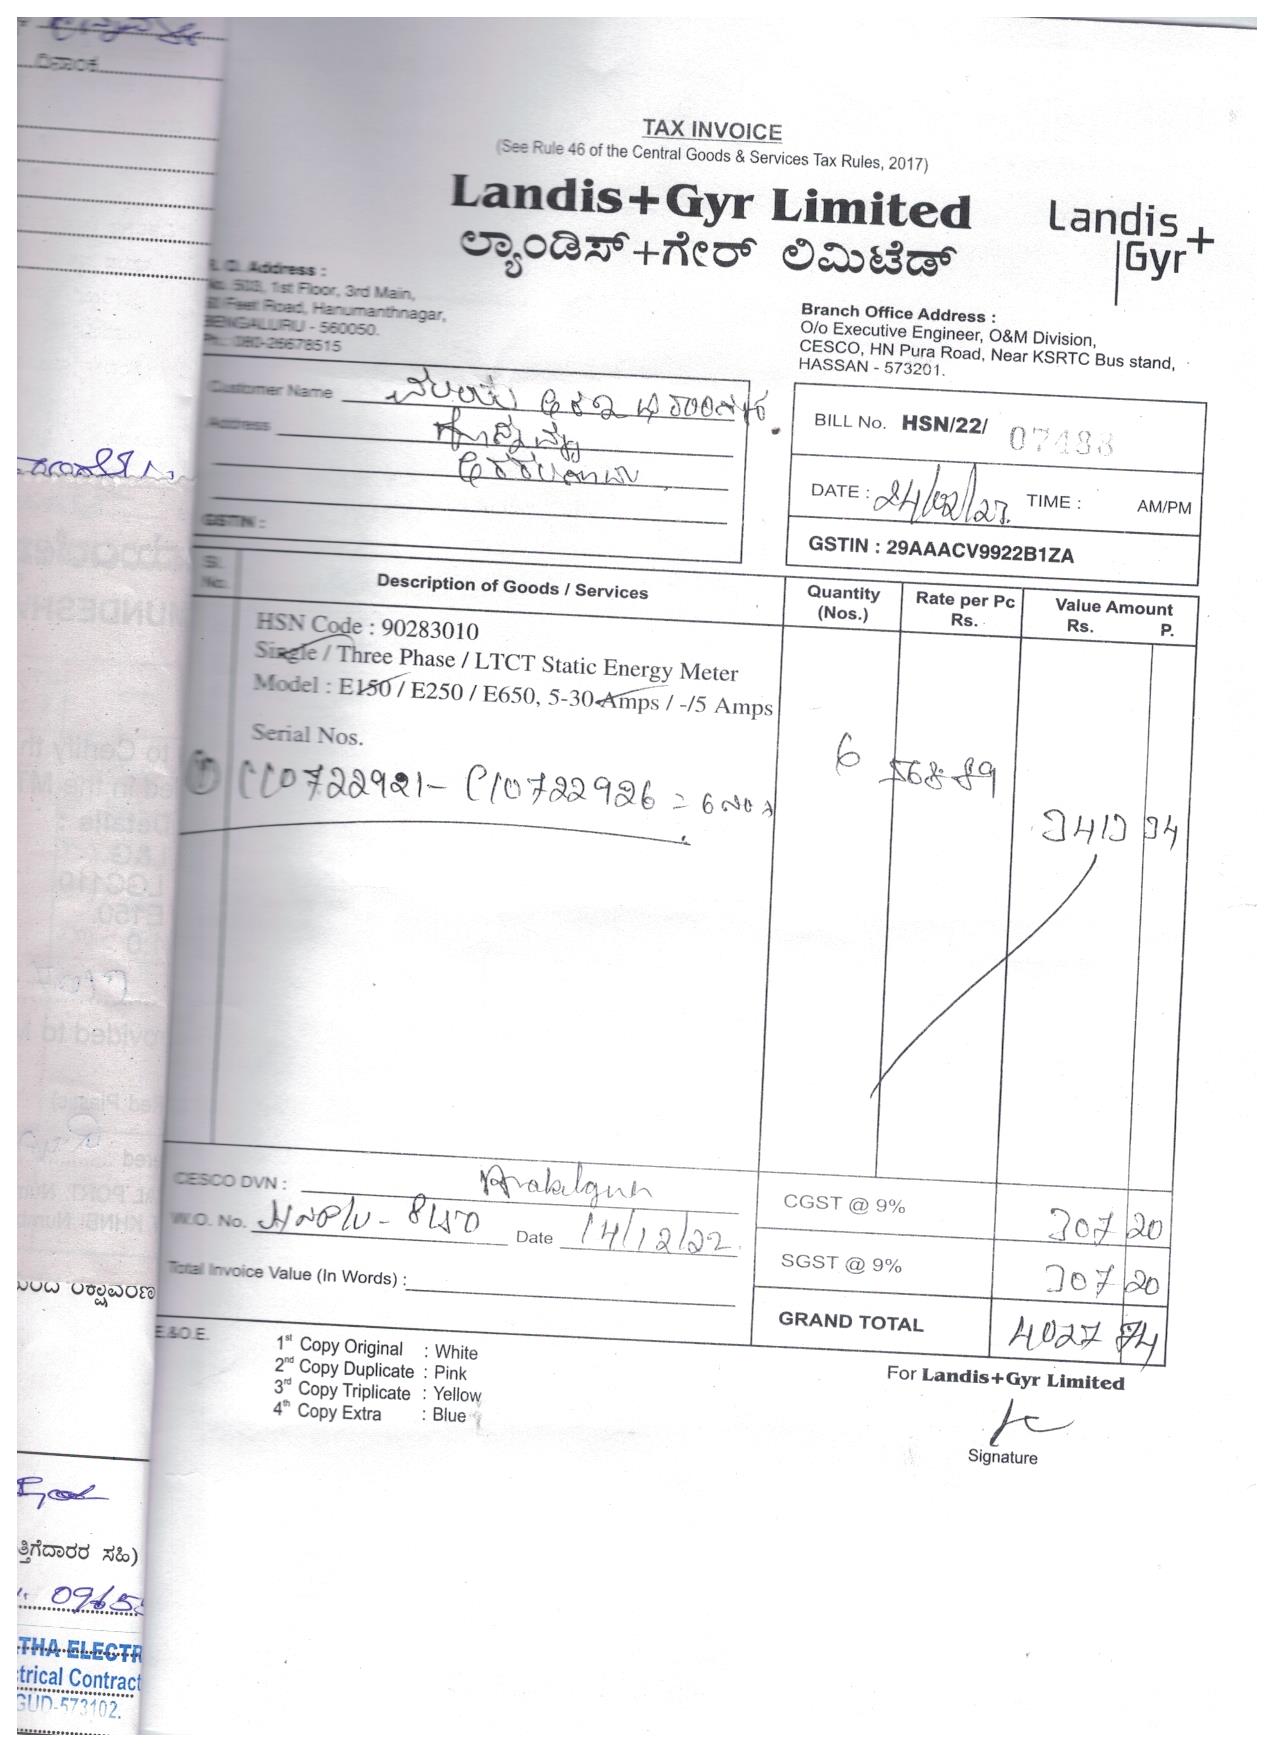 ದಿನಾಂಕ
TAX INVOICE
(See Rule 46 of the Central Goods & Services Tax Rules, 2017)
Landis+Gyr Limited
ಲ್ಯಾಂಡಿಸ್+ಗೇರ್ ಲಿಮಿಟೆಡ್
Landis+
Gyr
Address :
503, 1st Floor, 3rd Main,
Feet Road, Hanumanthnagar,
BENGALURU - 560050.
Ph.: 080-26678515
Branch Office Address :
O/o Executive Engineer, O&M Division,
CESCO, HN Pura Road, Near KSRTC Bus stand,
HASSAN - 573201.
Customer Name
Address
GSTIN :
BILL No. HSN/22/ 07488
DATE : 24/02/23. TIME : AM/PM
GSTIN : 29AAACV9922B1ZA
Sl. No. Description of Goods / Services Quantity (Nos.) Rate per Pc Rs. Value Amount Rs. P.
HSN Code : 90283010
Single / Three Phase / LTCT Static Energy Meter
Model : E150 / E250 / E650, 5-30 Amps / -/5 Amps
Serial Nos.
① C10722921 - C10722926 = 6 6 568.89
3413 34
CESCO DVN :
CGST @ 9% 307 20
W.O. No. Date 14/12/22.
SGST @ 9% 307 20
Total Invoice Value (In Words) :
GRAND TOTAL 4027 74
E.&O.E.
1st Copy Original : White
2nd Copy Duplicate : Pink
3rd Copy Triplicate : Yellow
4th Copy Extra : Blue
For Landis+Gyr Limited
Signature
ತ್ತಿಗೆದಾರರ ಸಹಿ)
THA ELECTR
trical Contract
GUD-573102.